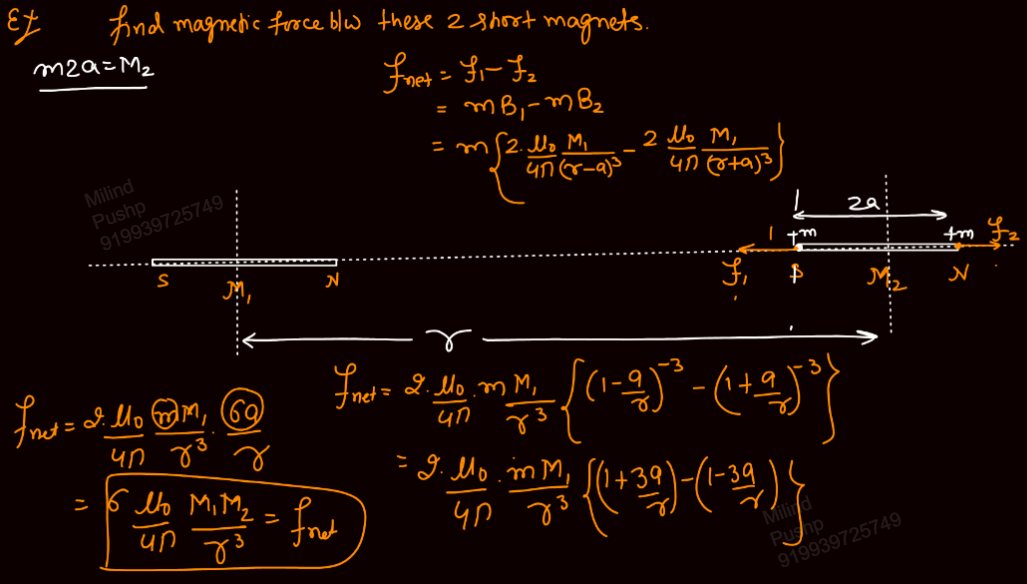 Ex find magnetic force b/w these 2 short magnets.
m2a = M₂
fnet = f₁ - f₂
= mB₁ - mB₂
= m{2. μ₀/4π M₁/(r-a)³ - 2 μ₀/4π M₁/(r+a)³}
Milind
Pushp
919939725749
2a
1 +m +m f₂
S M₁ N f₁ S M₂ N
r
fnet = 2. μ₀/4π . m M₁/r³ {(1-a/r)⁻³ - (1+a/r)⁻³}
= 2. μ₀/4π . mM₁/r³ {(1+3a/r) - (1-3a/r)}
fnet = 2. μ₀/4π mM₁/r³ . 6a/r
= 6 μ₀/4π M₁M₂/r³ = fnet
Milind
Pushp
919939725749